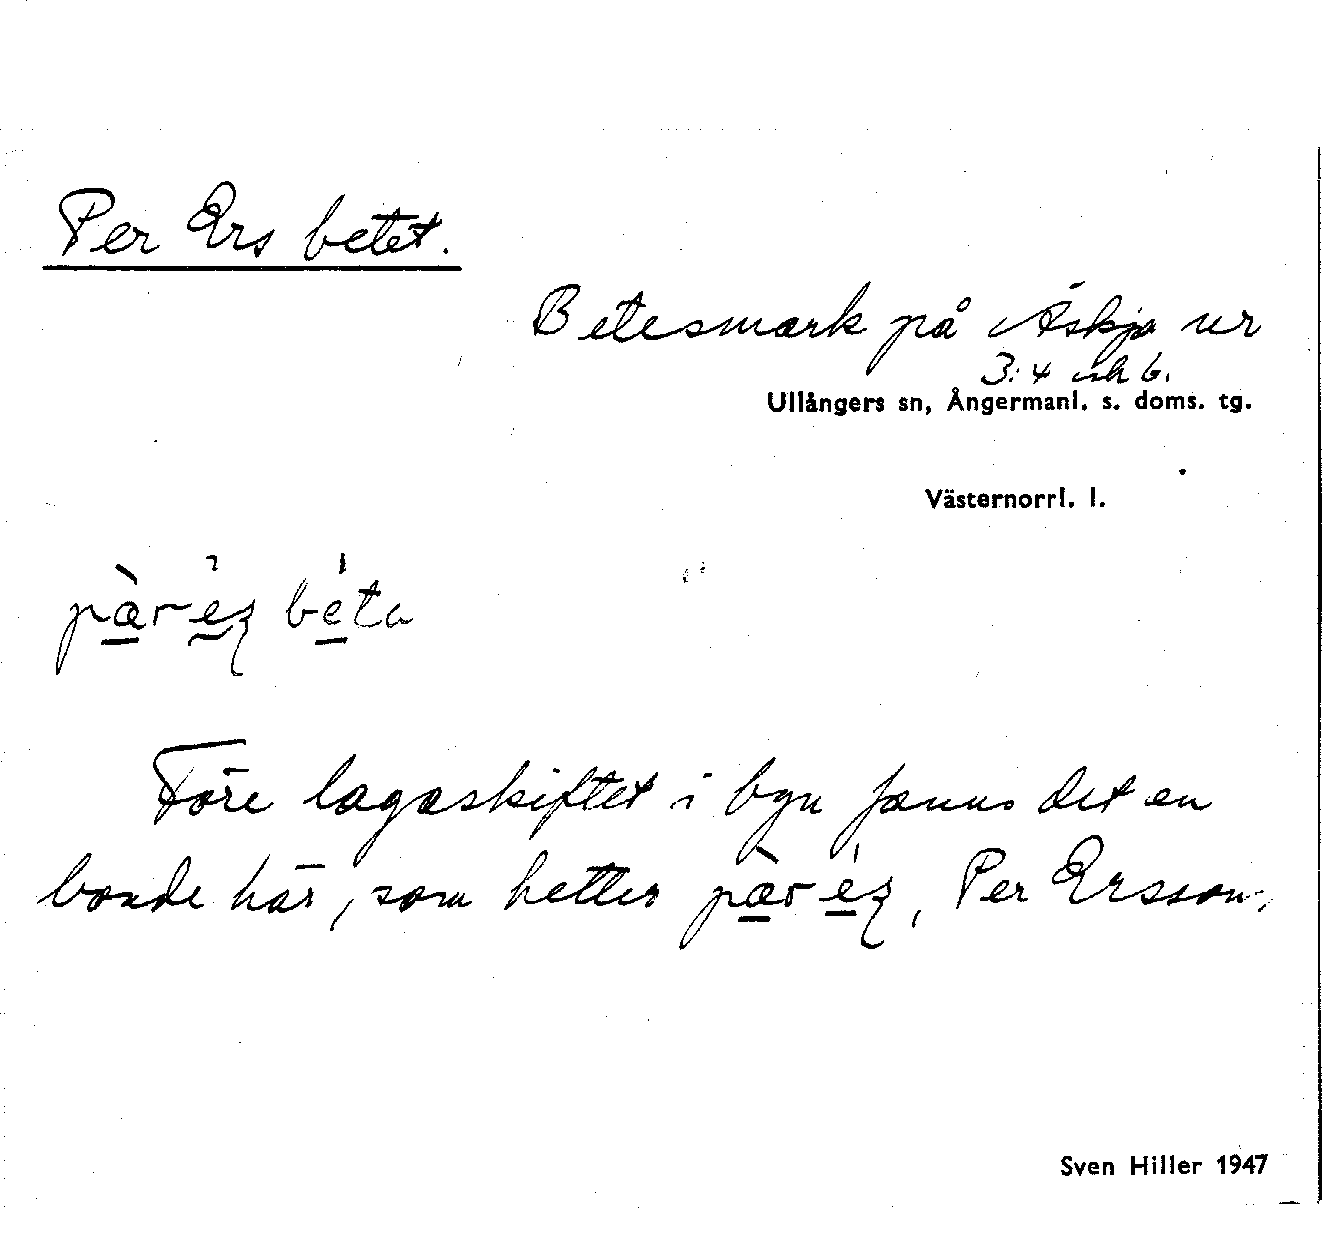 Per Ers betet.
Betesmark på Äskja nr
3:4 och 6.
Ullångers sn, Ångermanl. s. doms. tg.
Västernorrl. l.
pær ez beta
Före lagaskiftet i byn fanns det en
bonde här, som hetter pær ez, Per Ersson,
Sven Hiller 1947